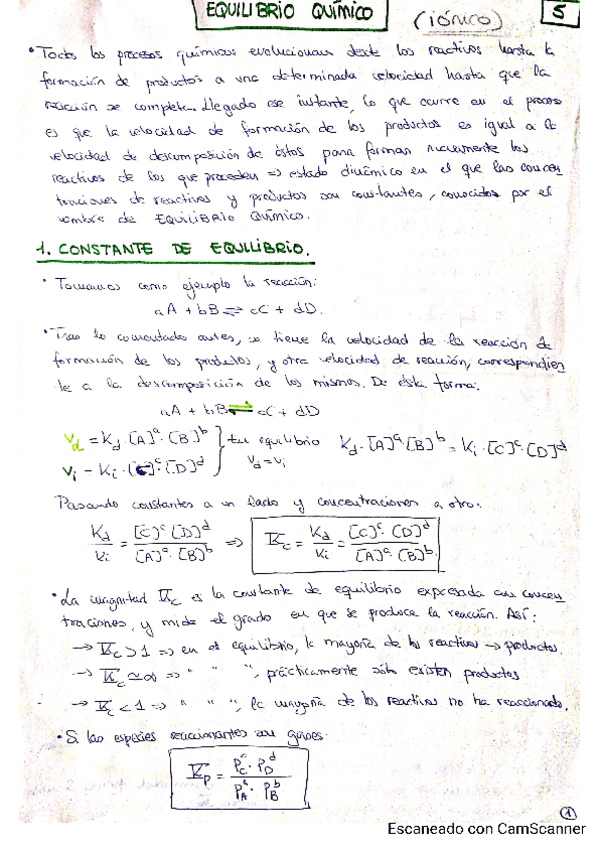 EQUILIBRIO QUÍMICO (iónico) 5
• Todos los procesos químicos evolucionan desde los reactivos hasta la
formación de productos a una determinada velocidad hasta que la
reacción se completa. Llegado ese instante, lo que ocurre en el proceso
es que la velocidad de formación de los productos es igual a la
velocidad de descomposición de éstos para formar nuevamente los
reactivos de los que proceden => estado dinámico en el que las concen
traciones de reactivos y productos son constantes, conocidos por el
nombre de EQUILIBRIO QUÍMICO.
1. CONSTANTE DE EQUILIBRIO.
• Tomamos como ejemplo la reacción:
aA + bB ⇌ cC + dD.
• Tras lo comentado antes, se tiene la velocidad de la reacción de
formación de los productos, y otra velocidad de reacción, correspondien
te a la descomposición de los mismos. De esta forma:
aA + bB ⇌ cC + dD
Vd = Kd · [A]^a · [B]^b } En equilibrio Kd · [A]^a [B]^b = Ki · [C]^c · [D]^d
Vi = Ki · [C]^c · [D]^d } Vd = Vi
Pasando constantes a un lado y concentraciones a otro:
Kd/Ki = [C]^c [D]^d / [A]^a · [B]^b => Kc = Kd/Ki = [C]^c · [D]^d / [A]^a · [B]^b
• La magnitud Kc es la constante de equilibrio expresada en concen
traciones, y mide el grado en que se produce la reacción. Así:
→ Kc > 1 => en el equilibrio, la mayoría de los reactivos → productos.
→ Kc ≃ ∞ => " " ", prácticamente sólo existen productos
→ Kc < 1 => " " ", la mayoría de los reactivos no ha reaccionado.
• Si las especies reaccionantes son gases:
Kp = P_C^c · P_D^d / P_A^a · P_B^b
1
Escaneado con CamScanner